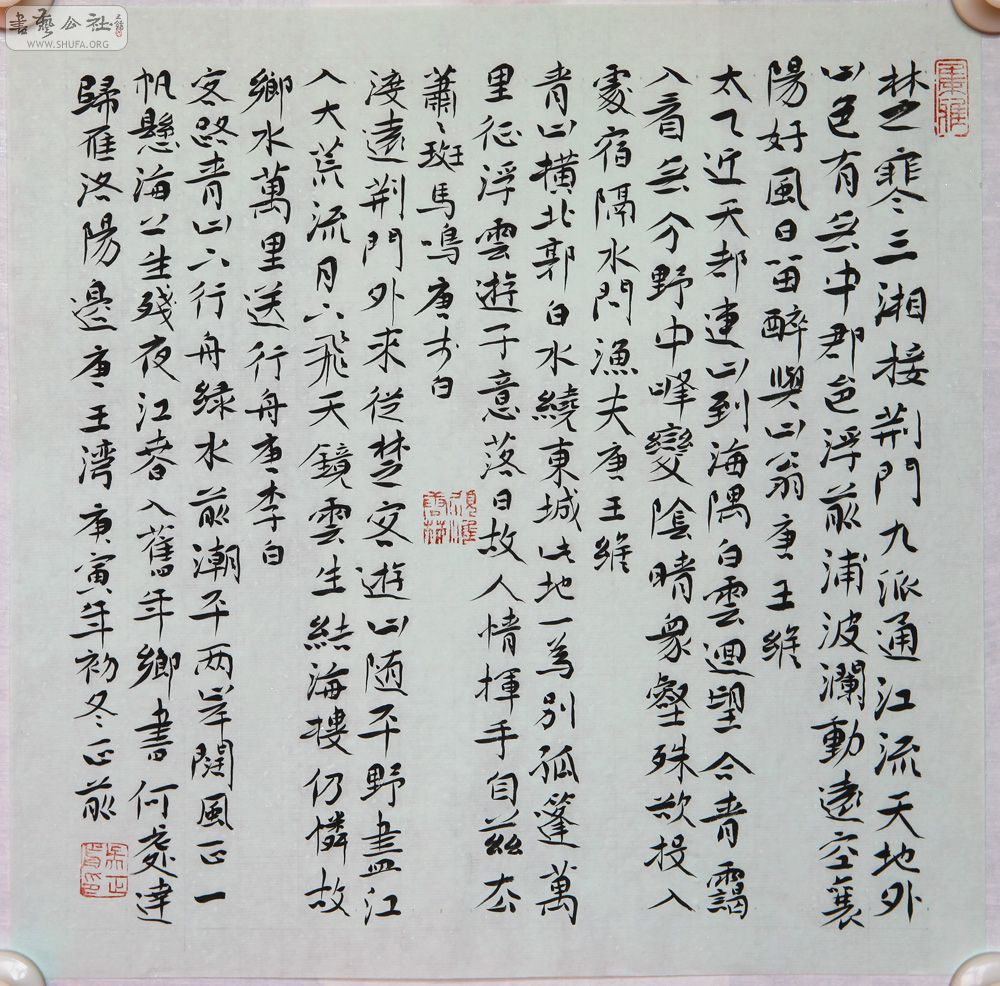 書藝公社
WWW.SHUFA.ORG
楚塞三湘接荊門九派通江流天地外
山色有無中郡邑浮前浦波瀾動遠空襄
陽好風日留醉與山翁唐王維
太乙近天都連山到海隅白雲迴望合青靄
入看無分野中峰變陰晴眾壑殊欲投入
處宿隔水問漁夫唐王維
青山橫北郭白水繞東城此地一為別孤篷萬
里征浮雲遊子意落日故人情揮手自茲去
蕭〻斑馬鳴唐李白
渡遠荊門外來從楚客遊山随平野盡江
入大荒流月下飛天鏡雲生結海樓仍憐故
鄉水萬里送行舟唐李白
客路青山下行舟綠水前潮平两岸闊風正一
帆懸海日生殘夜江春入舊年鄉書何處達
歸雁洛陽邊唐王灣庚寅年初冬正前